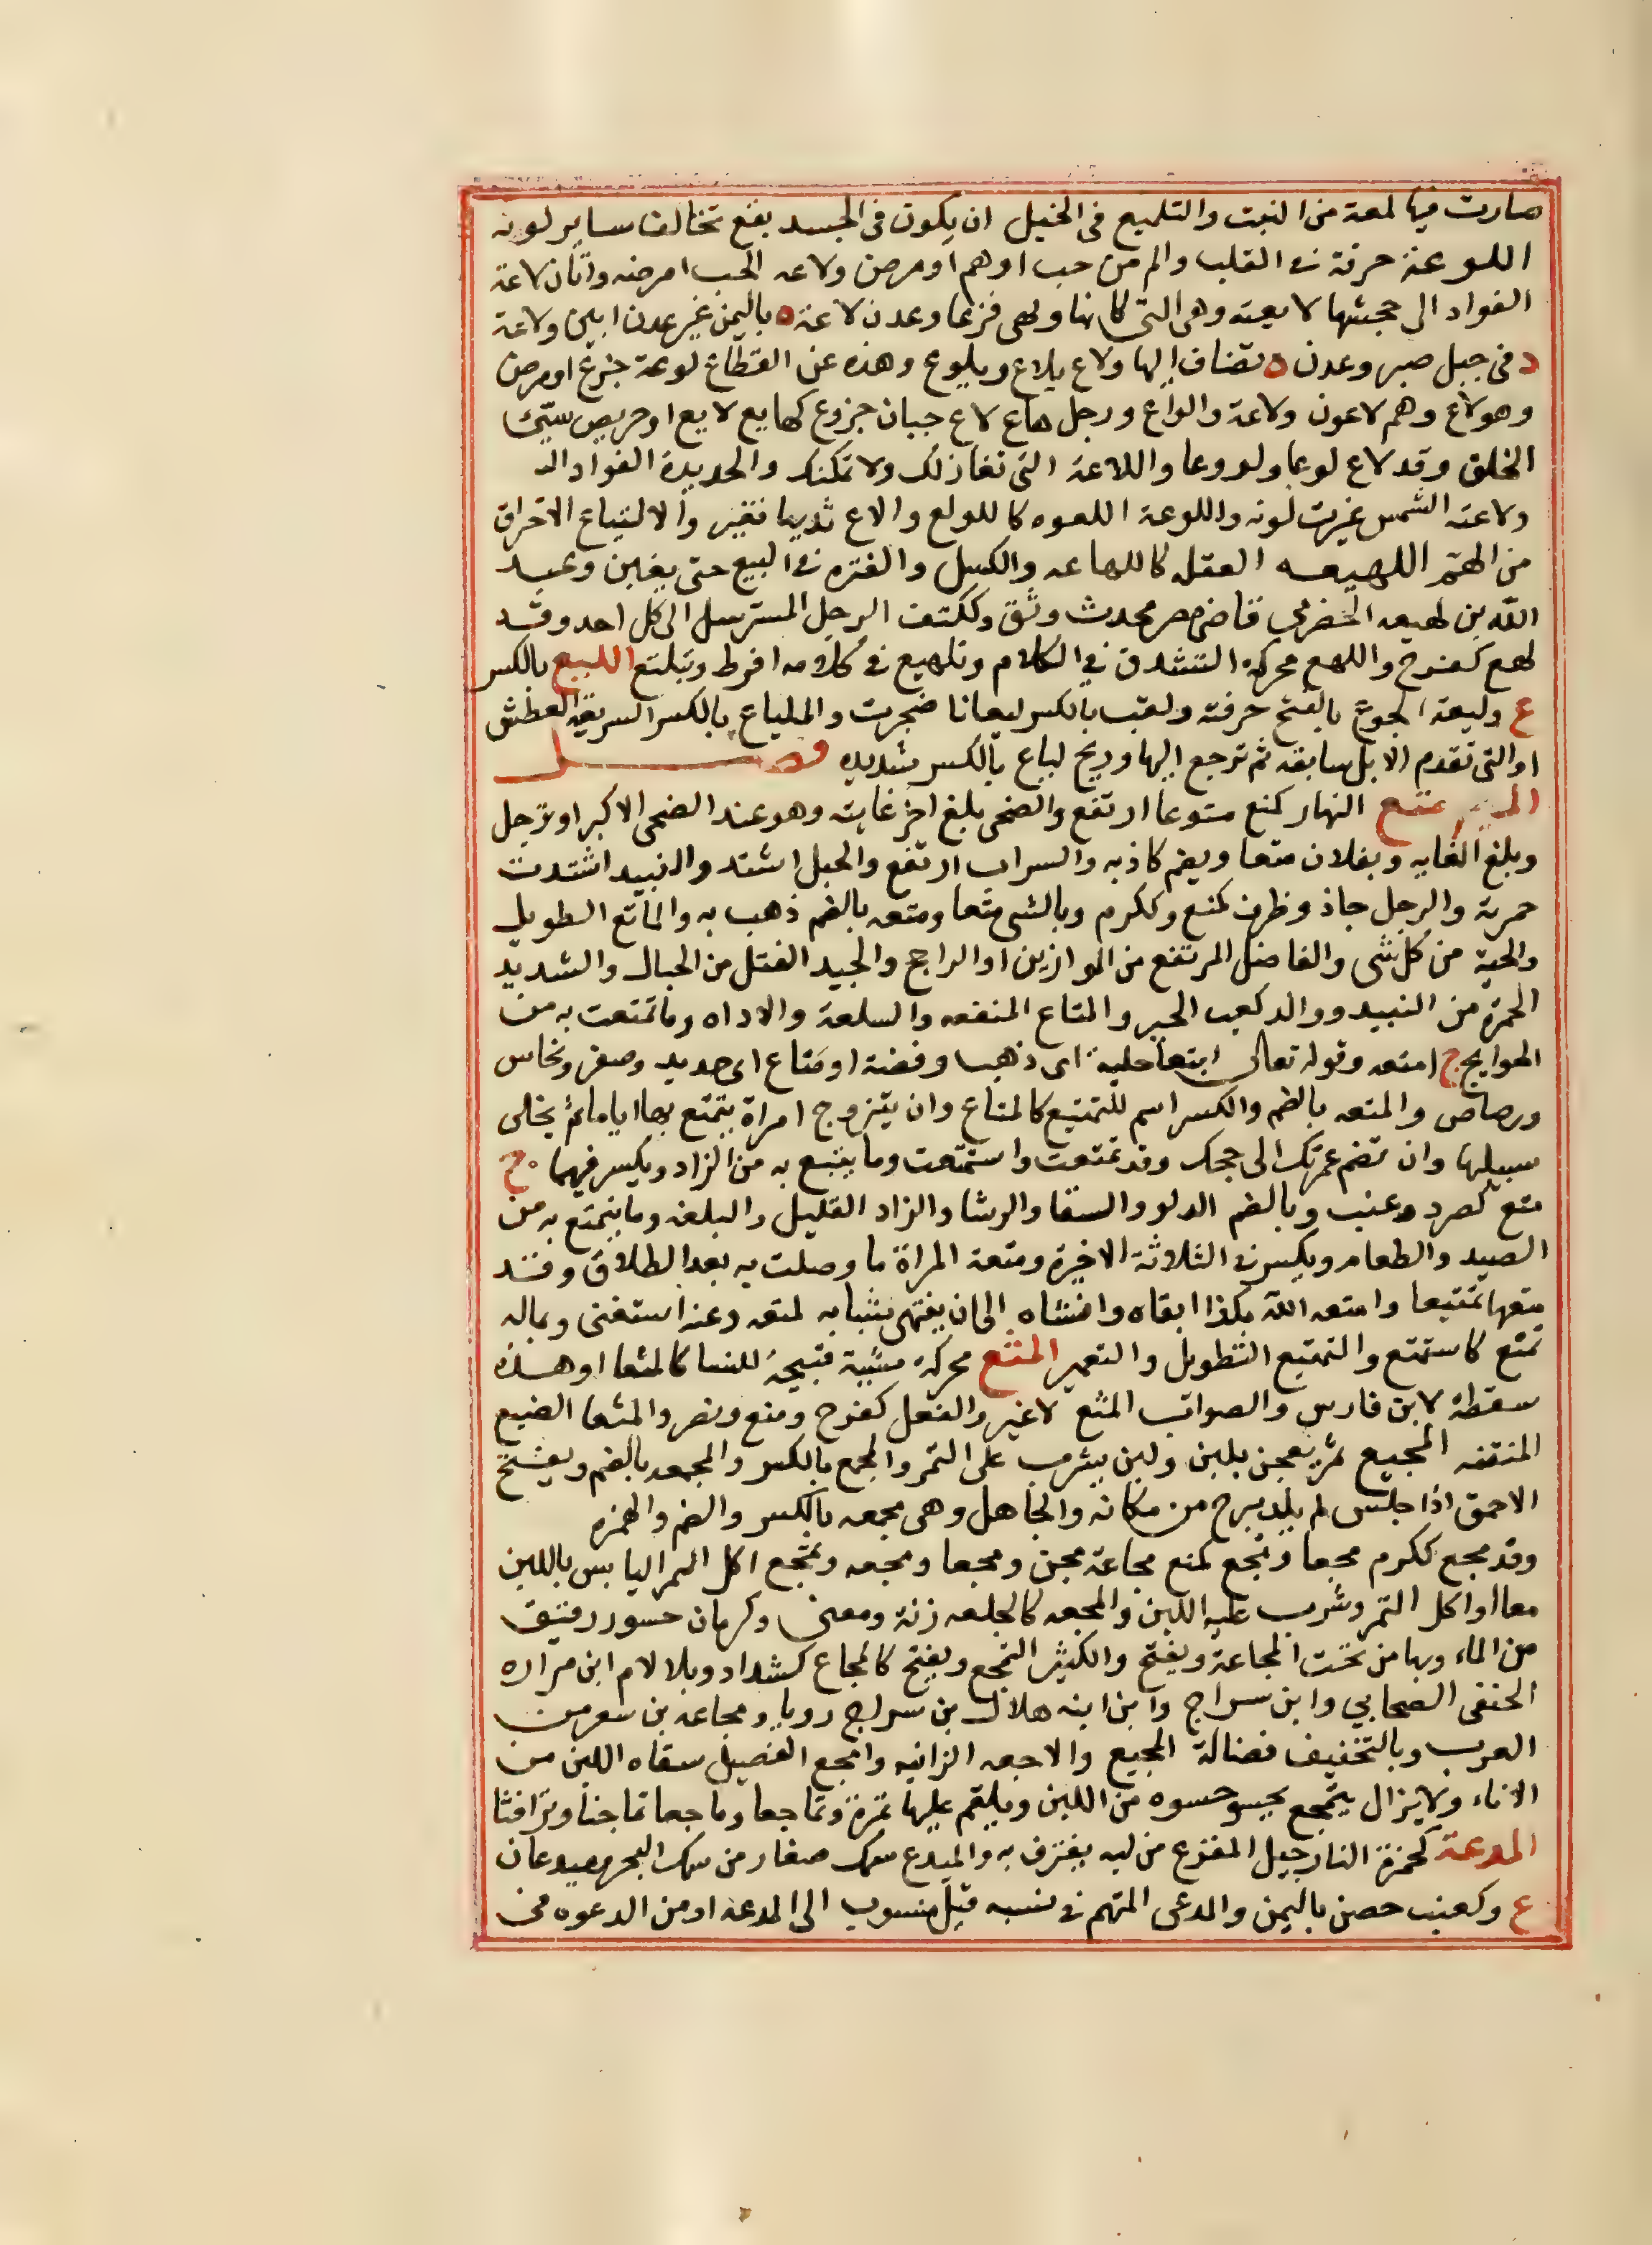 صارت فيها لمعة من النبت والتلميع في الخيل ان يكون في الجسد بقع تخالف ساير لونه
اللوعة حرقة في القلب والم من حب او هم او مرض ولاعه الحب امرضه واتان لاعة
الفواد الى جحشها لايعته وهي التي كانها ولهى فزعا وعدن لاعة ه باليمن غير عدن ابين ولاعة
د في جبل صبر وعدن ه تضاف اليها ولاع يلاع ويلوع وهذه عن القطاع لوعة جزع او مرض
وهو لاع وهم لاعون ولاعة والواع ورجل هاع لاع جبان جزوع كهايع لايع او حريص سيئ
الخلق وقد لاع لوعا ولووعا واللاعة التي تغازلك ولا تمكنك والحديدة الفواد الـ
ولاعته الشمس غيرت لونه واللوعة اللعوه كاللولع والاع ثديها تغير والالتياع الاحتراق
من الهم اللهيعه الغفله كاللهاعه والكسل والفتره في البيع حتى يغبن وعبد
الله بن لهيعه الحضرمي قاضي مصر محدث وثق وككتف الرجل المسترسل الى كل احد وقد
لهع كفرح واللهع محركه التشدق في الكلام وتلهيع في كلامه افرط وتبلتع الليع بالكسر
ع وليعة الجوع بالفتح حرقته ولعت بالكسر ليعانا ضجرت والملياع بالكسر السريعة العطش
او التي تقدم الابل سابقه ثم ترجع اليها وريح لياع بالكسر شديده فصل
الميم متع النهار كمنع متوعا ارتفع والضحى بلغ اخر غايته وهو عند الضحى الاكبر او ترجل
وبلغ الغايه وبفلان متعا ويضم كاذبه والسراب ارتفع والحبل اشتد والنبيد اشتدت
حمرته والرجل جاد وظرف كمنع وككرم وبالشي متعا ومتعه بالضم ذهب به والماتع الطويل
والجيد من كل شي والفاضل المرتفع من الموازين او الراجح والجيد الفتل من الحبال والشديد
الحمرة من النبيد ووالد كعب الحبر والمتاع المنفعه والسلعة والاداه وما تمتعت به من
الحوايج ج امتعه وقوله تعالى ابتغا حلية اى ذهب وفضة او متاع اى حديد وصفر ونحاس
ورصاص والمتعه بالضم والكسر اسم للتمتيع كالمتاع وان يتزوج امراة يتمتع بها اياما ثم يخلى
سبيلها وان تضم عمرتك الى حجك وقد تمتعت واستمتعت وما يتبع به من الزاد ويكسر فيهما ج
متع كصرد وعنب وبالضم الدلو والسقا والرشا والزاد القليل والبلغه وما يتمتع به من
الصيد والطعام ويكسر في الثلاثة الاخيرة ومتعة المراة ما وصلت به بعد الطلاق وقد
متعها تمتيعا وامتعه الله بكذا ابقاه وانشاه الى ان ينتهى شبابه لمتعه وعنه استغنى وبماله
تمتع كاستمتع والتمتيع التطويل والتعمير المثع محركة مشية قبيحة للنسا كالمثعا او هذه
سقطة لابن فارس والصواب المثع لا غير والفعل كفرح ومنع ونصر والمثعا الضبع
المنتنه المجيع تمر يعجن بلبن ولبن يشرب على التمر والمجع بالكسر والمجعه بالضم ويفتح
الاحمق اذا جلس لم يكد يبرح من مكانه والجاهل وهي مجعه بالكسر والضم والهمزه
وقد مجع ككرم مجعا ومجع كمنع مجاعة مجن ومجعا ومجعه وتمجع اكل التمر اليابس باللبن
معا او اكل التمر وشرب عليه اللبن والمجعه كالجلعه زنة ومعنى وكرمان حسو رقيق
من الماء وبها من تحت المجاعة ويفتح والكثير التمجع ويفتح كالمجاع كشداد وبلا لام ابن مراره
الحنفى الصحابي وابن سراج وابن ابنه هلال بن سراج رويا ومجاعه بن سعر من
العرب وبالتخفيف فضالة المجيع والاجعه الزانيه وامجع الفصيل سقاه اللبن من
الاناء ولا يزال يتمجع يحسو حسوه من اللبن ويلقم عليها تمرة وتماجعا وماجعا تماجنا وترافثا
المدعة كحمزة النارجيل المفزع من لبه يغترف به والميدع سمك صغار من سمك البحر وميدعان
ع وكعنب حصن باليمن والمدعى المتهم في نسبه قيل منسوب الى المدعه او من الدعوه في